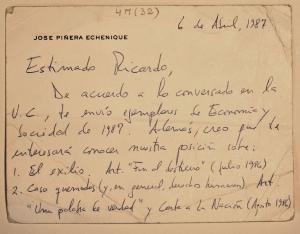 4M(32)
6 de Abril, 1987
JOSE PIÑERA ECHENIQUE
Estimado Ricardo,
De acuerdo a lo conversado en la
U.C., te envío ejemplares de Economía y
Sociedad de 1987. Además, creo que te
interesará conocer nuestra posición sobre:
1. El exilio. Art. "Fin al destierro" (julio 1986)
2. Caso quemados (y, en general, derechos humanos). Art.
"Una palabra de verdad" y Carta a La Nación (Agosto 1986)